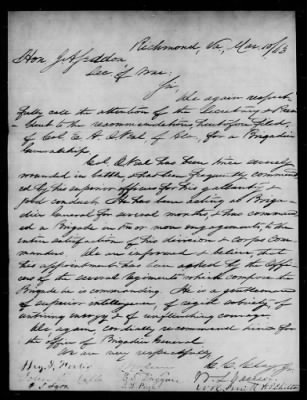 Richmond, Va, Mar. 10/63
Hon J A Seddon
Sec of War,
Sir,
We again respect-
fully call the attention of the Secretary & Presi-
dent to the recommendation, heretofore filed,
of Col. E. A. O'Neal, of Ala, for a Brigadier
Generalship.
Col. O'Neal has been twice severely
wounded in battle, & has been frequently commend-
ed by his superior officers for his gallantry &
good conduct. He has been acting as Briga-
dier General for several months, & thus command-
ed a Brigade in two or more engagements, to the
entire satisfaction of his division & corps Com-
manders. We are informed & believe, that
his appointment has been asked by the offi-
cers of the several Regiments which compose the
Brigade he is commanding. He is a gentleman
of superior intelligence, of rigid sobriety, of
untiring energy & of unflinching courage.
We again, cordially recommend him for
the office of Brigadier General
We are very respectfully
C. C. Clay, Jr.
F. S. Lyon
W. R. Smith